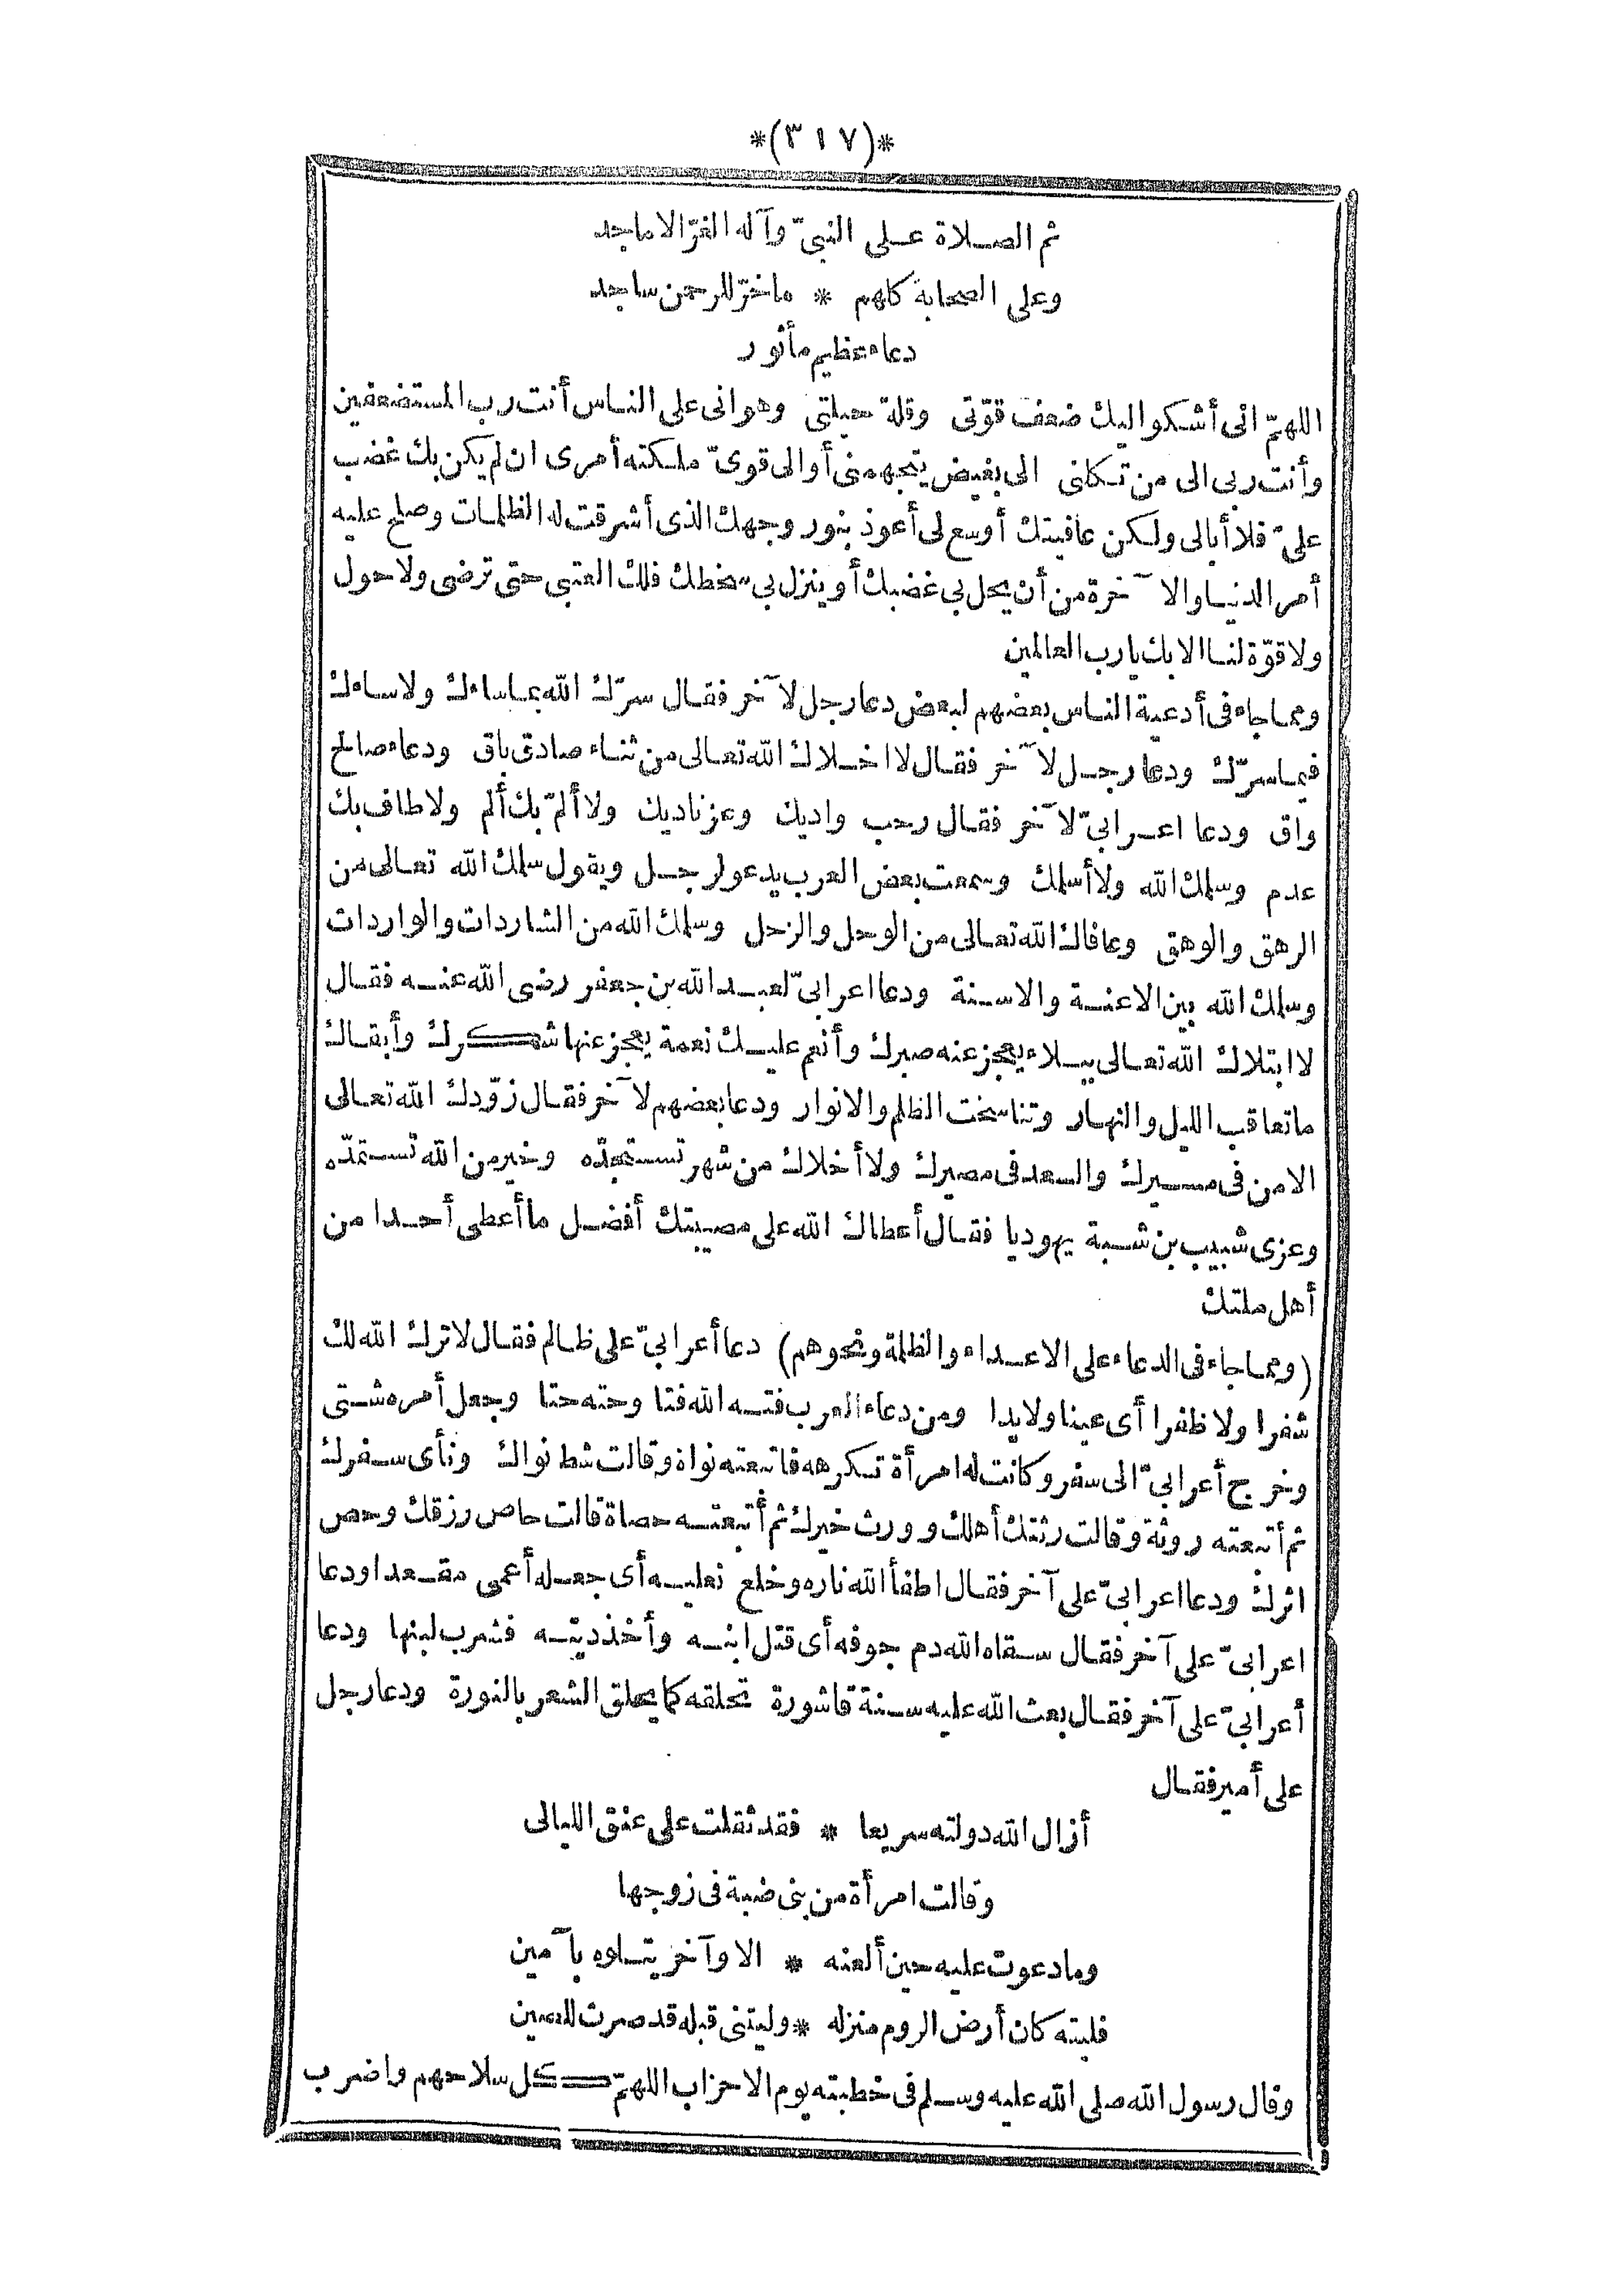 *(٣١٧)*
ثم الصلاة على النبىّ وآله الغرّ الاماجد
وعلى الصحابة كلهم * ماخرّ للرحمن ساجد
دعاء عظيم مأثور
اللهمّ انى أشكو اليك ضعف قوّتى وقلة حيلتى وهوانى على الناس أنت رب المستضعفين
وأنت ربى الى من تكلنى الى بغيض يتجهمنى أو الى قوىّ ملكته أمرى ان لم يكن بك غضب
علىّ فلا أبالى ولكن عافيتك أوسع لى أعوذ بنور وجهك الذى أشرقت له الظلمات وصلح عليه
أمر الدنيا والآخرة من أن يحل بى غضبك أو ينزل بى سخطك فلك العتبى حتى ترضى ولا حول
ولا قوّة لنا الا بك يارب العالمين
ومما جاء فى أدعية الناس بعضهم لبعض دعا رجل لآخر فقال سرّك الله بما ساءك ولا ساءك
فيما سرّك ودعا رجل لآخر فقال لا اخلاك الله تعالى من ثناء صادق باق ودعاء صالح
واق ودعا اعرابىّ لآخر فقال رحب واديك وعز ناديك ولا ألمّ بك ألم ولا طاف بك
عدم وسلمك الله ولا أسلمك وسمعت بعض العرب يدعو لرجل ويقول سلمك الله تعالى من
الرهق والوهق وعافاك الله تعالى من الوحل والزحل وسلمك الله من الشاردات والواردات
وسلمك الله بين الاعنة والاسنة ودعا اعرابىّ لعبد الله بن جعفر رضى الله عنه فقال
لا ابتلاك الله تعالى ببلاء يعجز عنه صبرك وأنعم عليك نعمة يعجز عنها شكرك وأبقاك
ماتعاقب الليل والنهار وتناسخت الظلم والانوار ودعا بعضهم لآخر فقال زوّدك الله تعالى
الامن فى مسيرك والسعد فى مصيرك ولا أخلاك من شهر تستجدّه وخير من الله تستمدّه
وعزى شبيب بن شبة يهوديا فقال أعطاك الله على مصيبتك أفضل ما أعطى أحدا من
أهل ملتك
(ومما جاء فى الدعاء على الاعداء والظلمة ونحوهم) دعا أعرابىّ على ظالم فقال لا ترك الله لك
شفرا ولا ظفرا أى عينا ولا يدا ومن دعاء العرب فته الله فتا وحته حتا وجعل أمره شتى
وخرج أعرابىّ الى سفر وكانت له امرأة تكرهه فاتبعته نواة وقالت شط نواك ونأى سفرك
ثم أتبعته روثة وقالت رثتك أهلك وورث خيرك ثم أتبعته حصاة قالت حاص رزقك وحص
اثرك ودعا اعرابىّ على آخر فقال اطفأ الله ناره وخلع نعليه أى جعله أعمى مقعدا ودعا
اعرابىّ على آخر فقال سقاه الله دم جوفه أى قتل ابنه وأخذ ديته فشرب لبنها ودعا
أعرابىّ على آخر فقال بعث الله عليه سنة قاشورة تحلقه كما يحلق الشعر بالنورة ودعا رجل
على أمير فقال
أزال الله دولته سريعا * فقد ثقلت على عنق الليالى
وقالت امرأة من بنى ضبة فى زوجها
وما دعوت عليه حين ألعنه * الا وآخر يتلوه بآمين
فليته كان أرض الروم منزله * وليتنى قبله قد صرت للصين
وقال رسول الله صلى الله عليه وسلم فى خطبته يوم الاحزاب اللهمّ كل سلاحهم واضرب